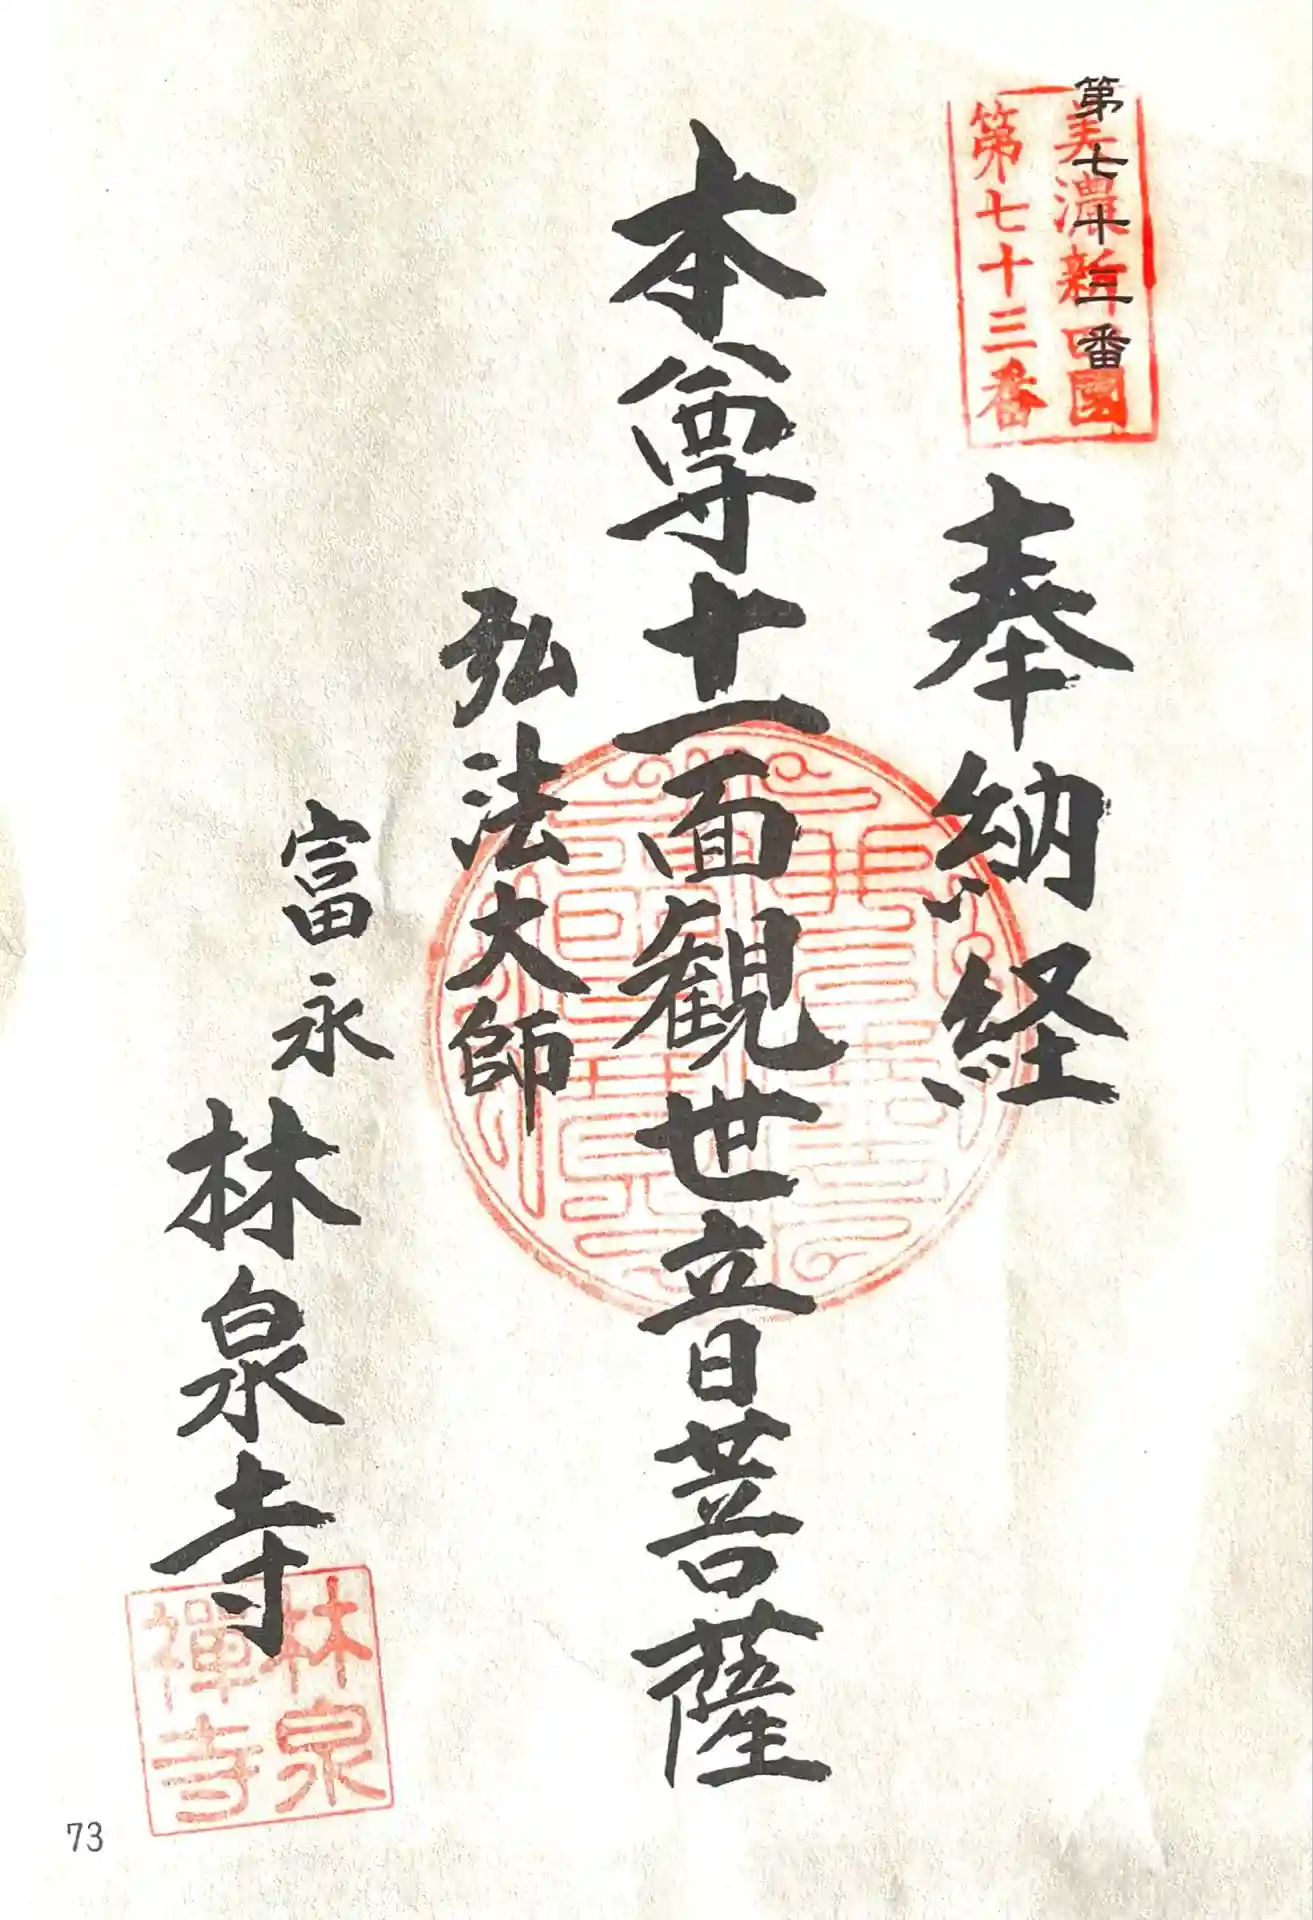 第七十三番
美濃新四國
第七十三番
奉納経
本尊十一面観世音菩薩
弘法大師
富永
林泉寺
林泉
禪寺
73